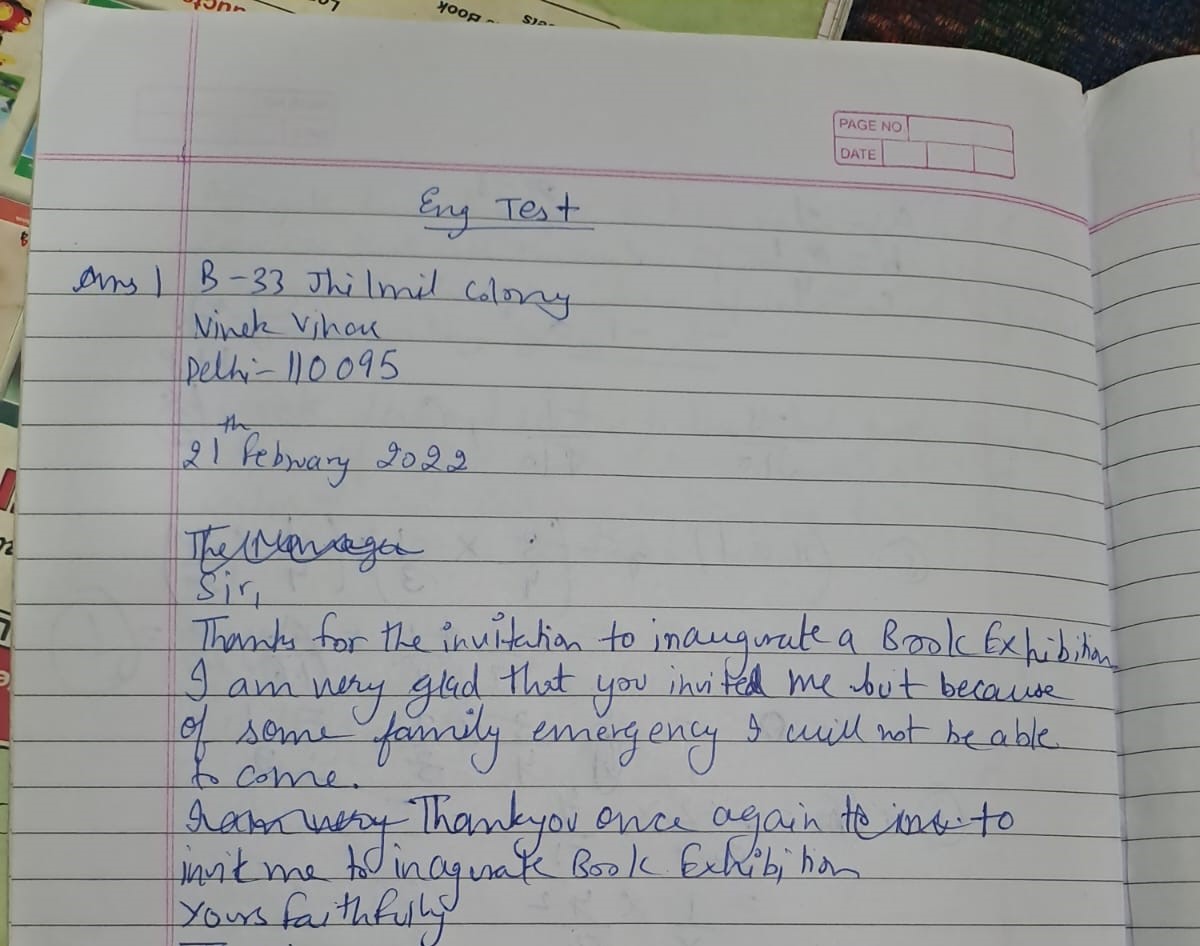 PAGE NO.
DATE
Eng Test
Ans 1 B-33 Jhilmil Colony
Vivek Vihar
Delhi-110095
21th February 2022
The Manager
Sir,
Thanks for the invitation to inaugurate a Book Exhibition
I am very glad that you invited me but because
of some family emergency I will not be able
to come.
I am very Thankyou once again to to
invit me to inagurate Book Exhibition
Yours faithfully